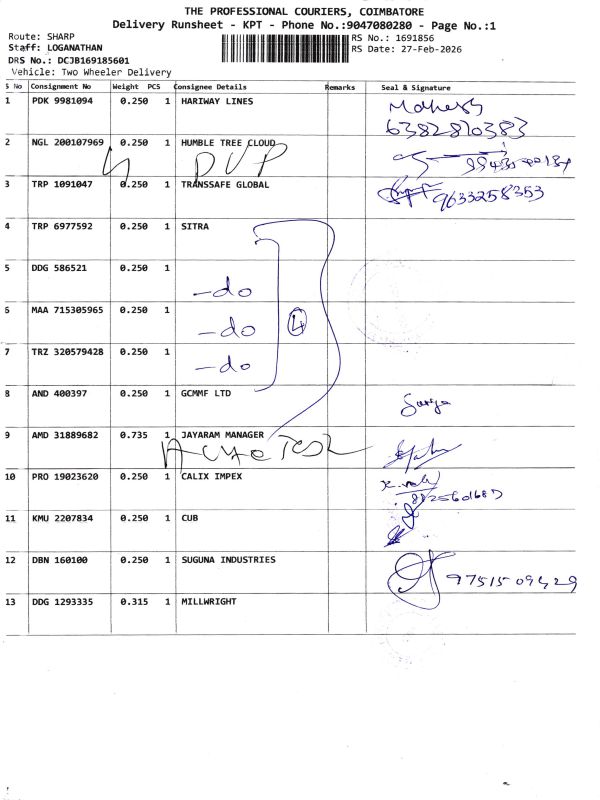 THE PROFESSIONAL COURIERS, COIMBATORE
Delivery Runsheet - KPT - Phone No.:9047080280 - Page No.:1
Route: SHARP
RS No.: 1691856
Staff: LOGANATHAN
RS Date: 27-Feb-2026
DRS No.: DCJB169185601
Vehicle: Two Wheeler Delivery
S No Consignment No Weight PCS Consignee Details Remarks Seal & Signature
1 PDK 9981094 0.250 1 HARIWAY LINES Mahesh
6382820383
2 NGL 200107969 0.250 1 HUMBLE TREE CLOUD
DVP
3 TRP 1091047 0.250 1 TRANSSAFE GLOBAL 9633258353
4 TRP 6977592 0.250 1 SITRA
5 DDG 586521 0.250 1
-do
6 MAA 715305965 0.250 1
-do 4
7 TRZ 320579428 0.250 1
-do
8 AND 400397 0.250 1 GCMMF LTD
Surya
9 AMD 31889682 0.735 1 JAYARAM MANAGER
10 PRO 19023620 0.250 1 CALIX IMPEX
11 KMU 2207834 0.250 1 CUB
12 DBN 160100 0.250 1 SUGUNA INDUSTRIES
9751509429
13 DDG 1293335 0.315 1 MILLWRIGHT